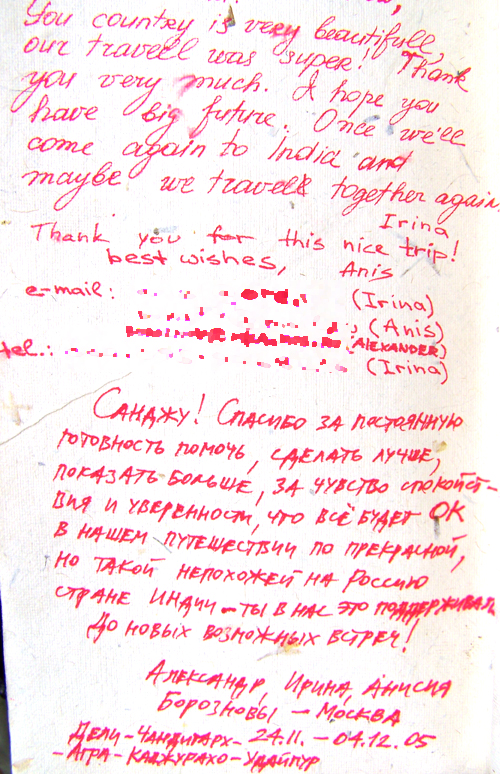 You country is very beautifull,
our travell was super! Thank
you very much. I hope you
have big future. Once we'll
come again to India and
maybe we travell together again.
Irina
Thank you for this nice trip!
best wishes, Anis
e-mail: (Irina)
(Anis)
(ALEXANDER)
tel.: (Irina)
Санджу! Спасибо за постоянную
готовность помочь, сделать лучше,
показать больше, за чувство спокойст-
вия и уверенности, что всё будет ОК
в нашем путешествии по прекрасной,
но такой непохожей на Россию
стране Индии - ты в нас это поддерживал
До новых возможных встреч!
Александр, Ирина, Анисия
Борозновы - Москва
Дели - Чандигарх - 24.11. - 04.12.05
- Агра - Каджурахо - Удайпур